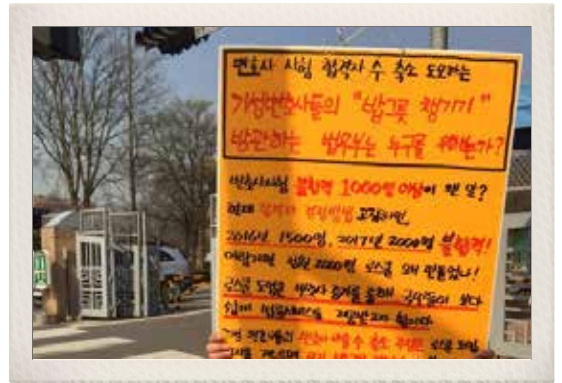 변호사 시험 합격자 수 축소 도모하는
기성변호사들의 "밥그릇 챙기기"
방관하는 법무부는 누구를 위하는가?
변호사시험 불합격 1000명 이상이 웬 말?
현재 합격자 결정방법 고집하면,
2016년 1500명, 2017년 2000명 불합격!
이럴거면 정원 2000명 로스쿨 왜 만들었나!
로스쿨 도입은 변호사 증가를 통해 국민들이 보다
쉽게 법률서비스를 제공받고자 함이다
기성 변호사들의 합격자 수 축소 주장은 로스쿨 도입